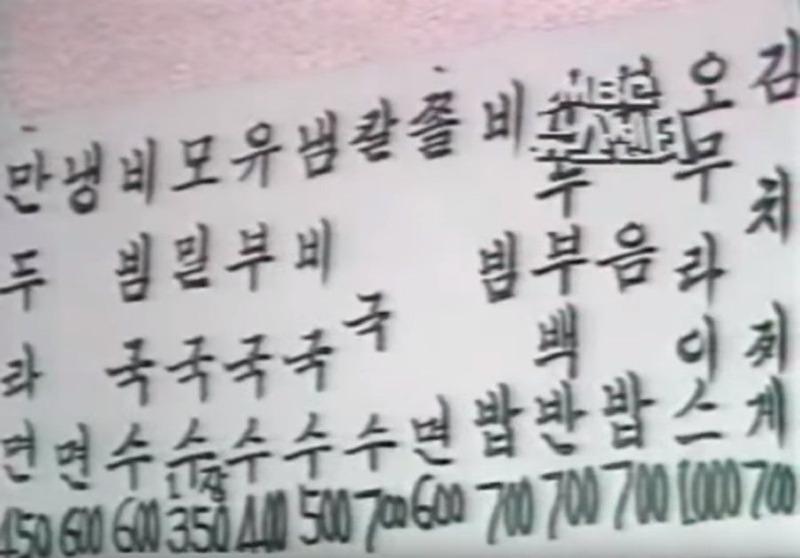 만두라면 450
냉면 600
비빔국수 600
모밀국수 1장 350
유부국수 400
냄비국수 500
칼국수 700
쫄면 600
비빔밥 700
두부백반 700
음밥 700
오무라이스 1000
김치찌게 700
MBC